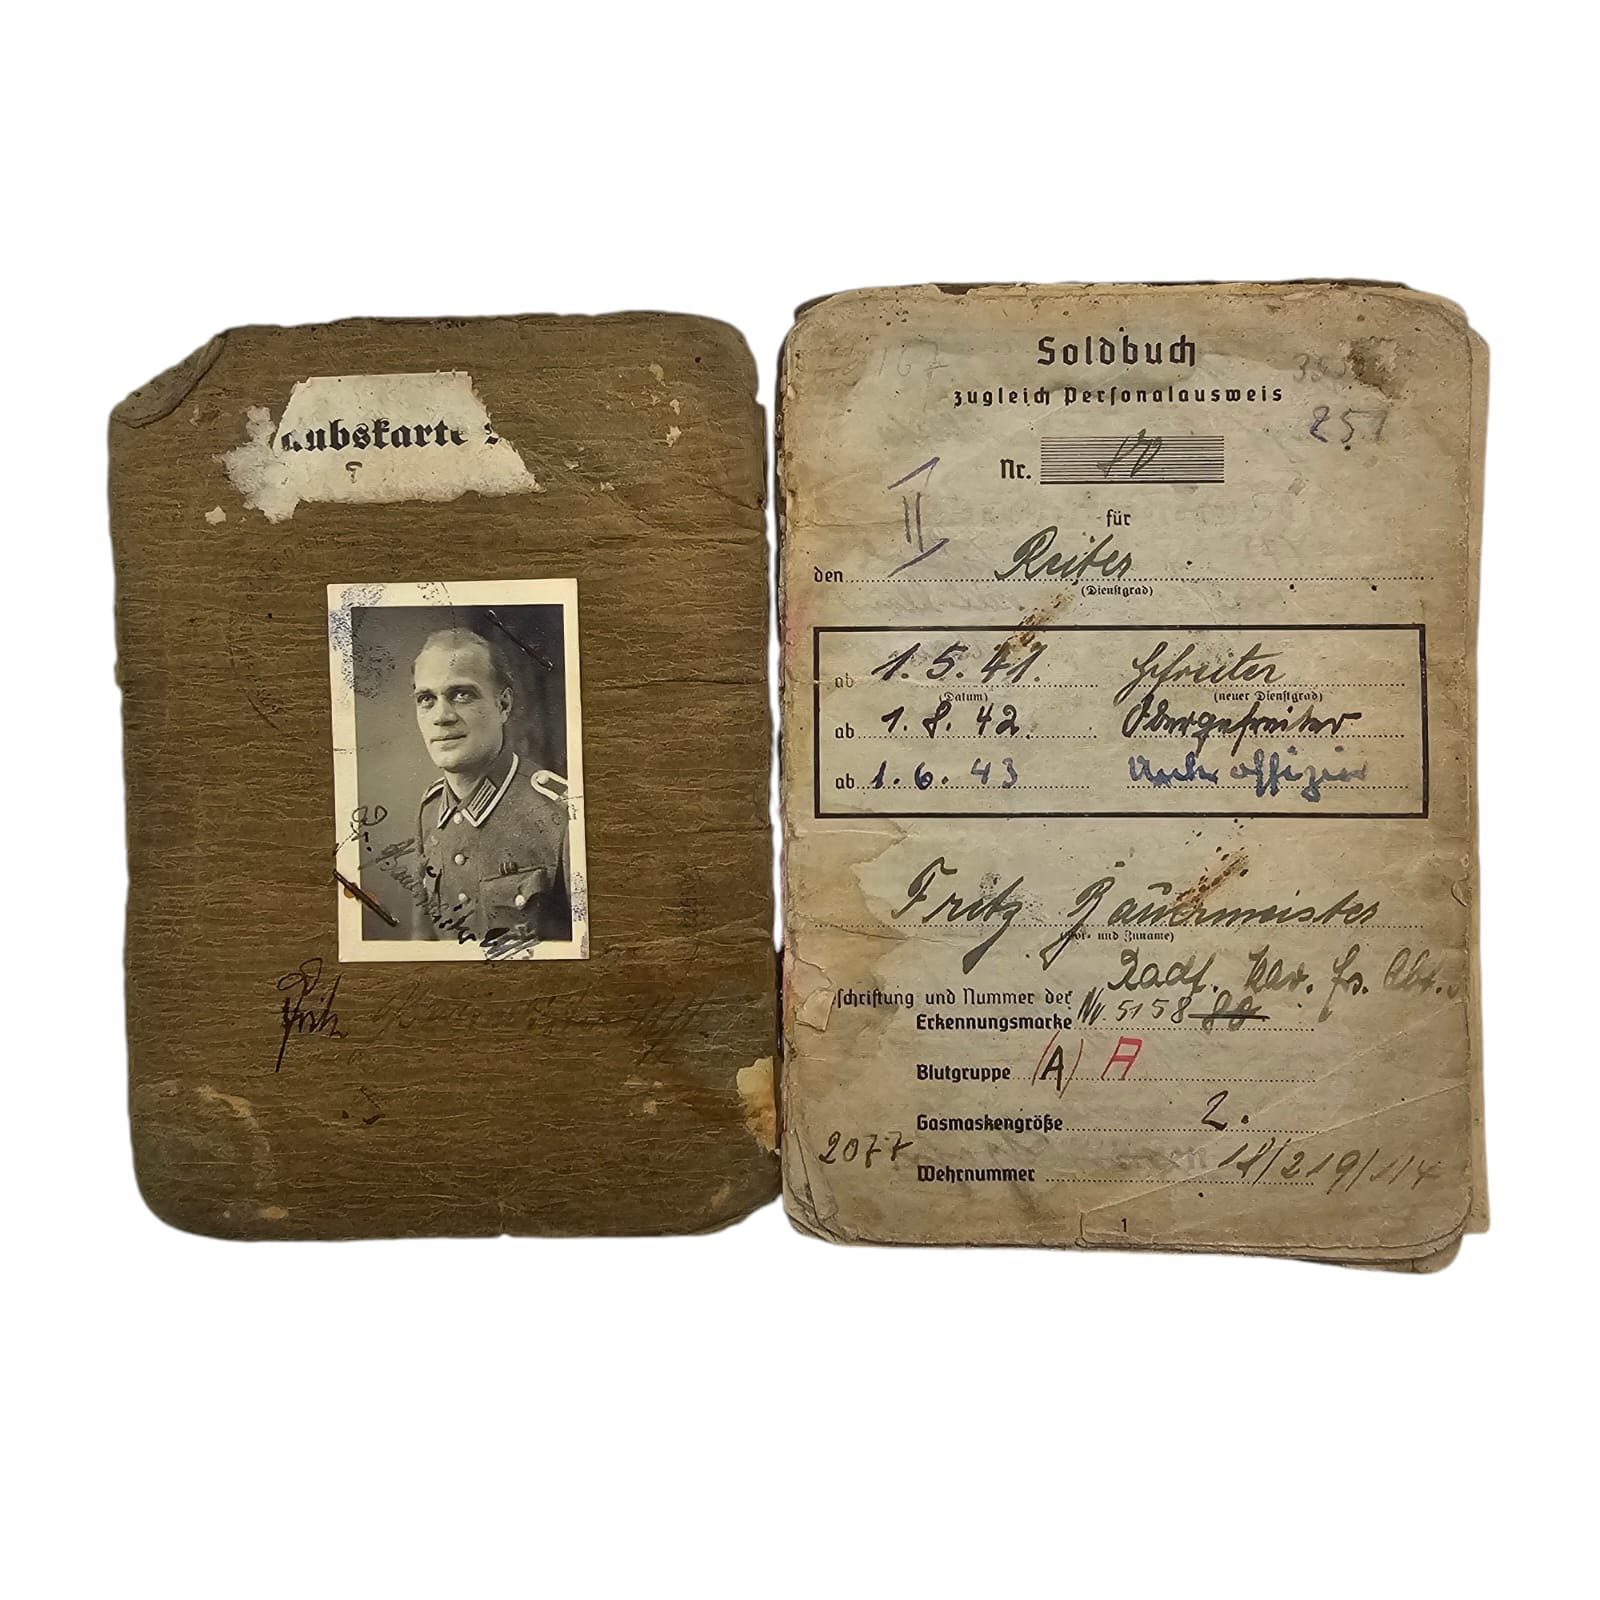 aubskarte
Fritz
Soldbuch
zugleich Personalausweis
251
Nr. 80
II
für
den Reiter
(Dienstgrad)
ab 1.5.41. Gefreiter
(Datum) (neuer Dienstgrad)
ab 1.8.42. Obergefreiter
ab 1.6.43 Unteroffizier
Fritz Bäuermeister
(Vor- und Zuname)
Radf. Kav. Ers. Abt.
schriftung und Nummer der
Erkennungsmarke Nr. 5158 80
Blutgruppe (A) A
Gasmaskengröße 2.
2077
Wehrnummer 18/219/1/4
1